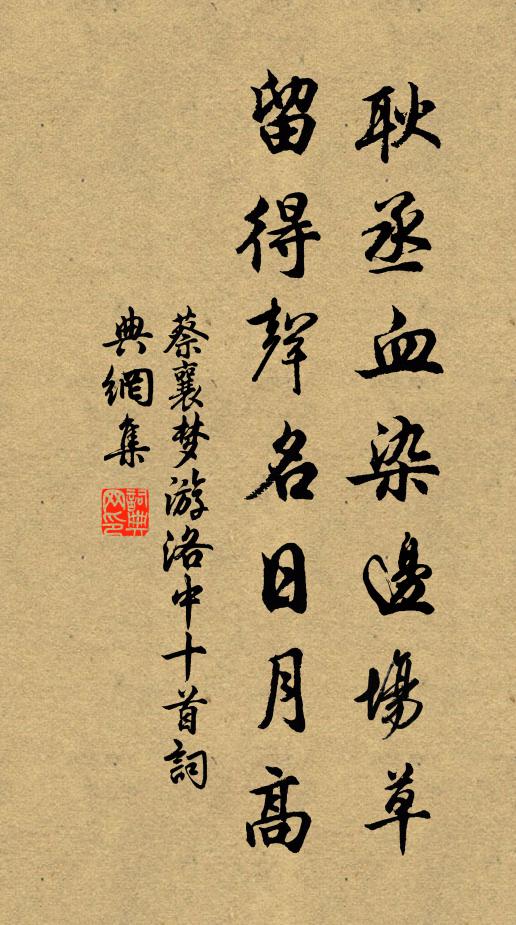 耿丞血染邊場草
留得聲名日月高
蔡襄梦游洛中十首詞
典網集
詞典网印